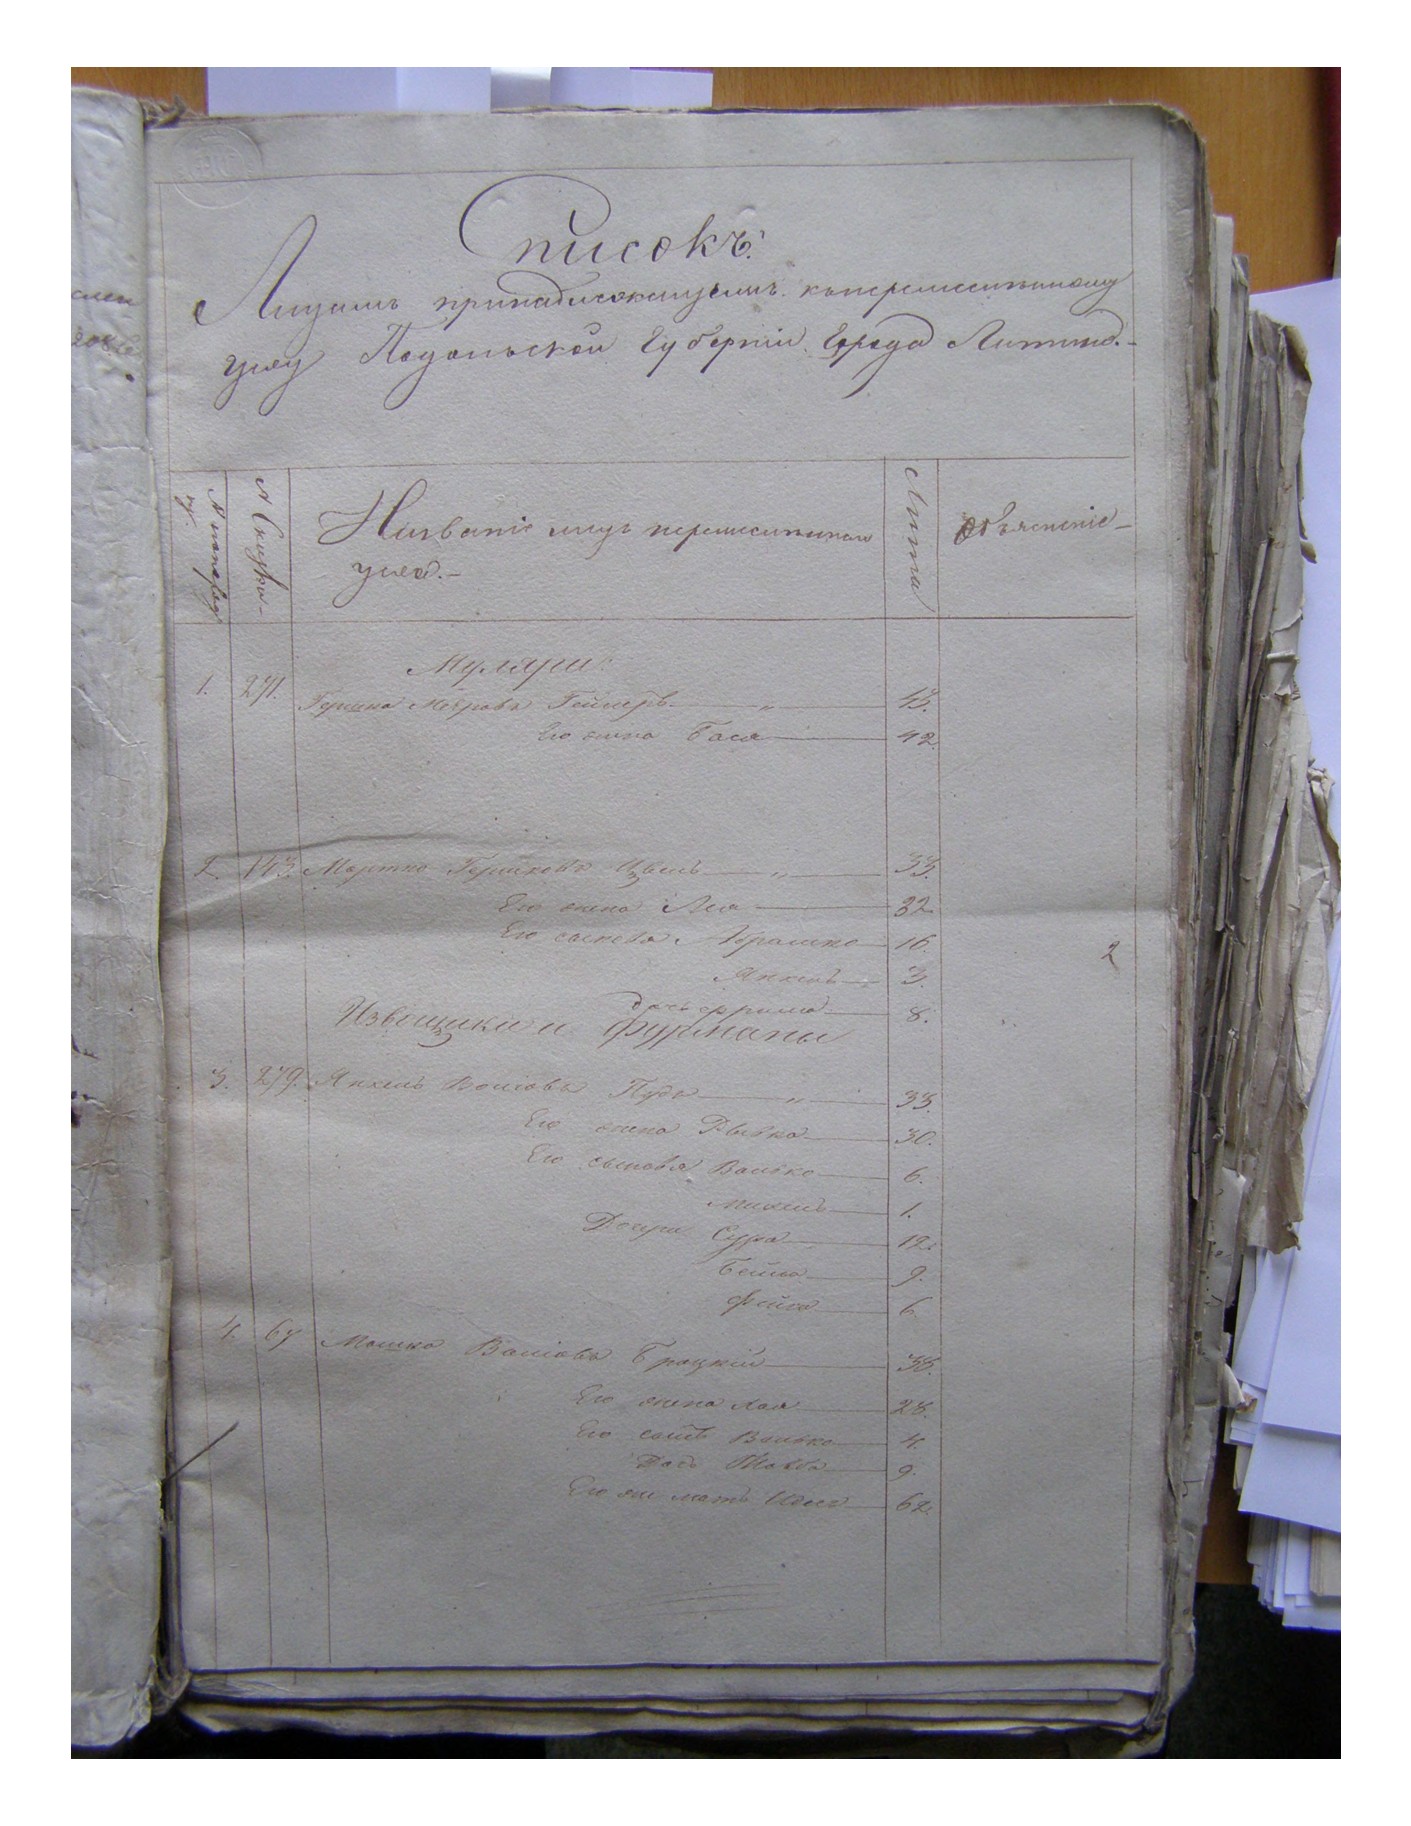 Списокъ.
Лицамъ принадлежащимъ къ ремесленному
цеху Подольской Губерніи Города Литина.-
№ поперед
ку.
№ Сказки-
Названіе лицъ ремесленного
цеха.-
Лѣта
Объясненіе-
Муляри:
1. 271. Гершко 43.
Его жена Бася 42.
2. 143. Мортко Гершковъ 33.
Его жена Лея 32.
Его сыновья Абрамко 16.
Янкель 3.
дочь Фрима 8.
Извощики и Фурманы
3. 279. Янкель Вольковъ 33.
Его жена Рывка 30.
Его сыновьяВолько 6.
1.
Дочери Сура 12.
Бейла 9.
Фейга 6.
4. 67 Мошко Вольковъ Брацкій 38.
Его жена Хая 28.
Его сынъ Волько 4.
Дочь 9.
Его же мать 62.
2